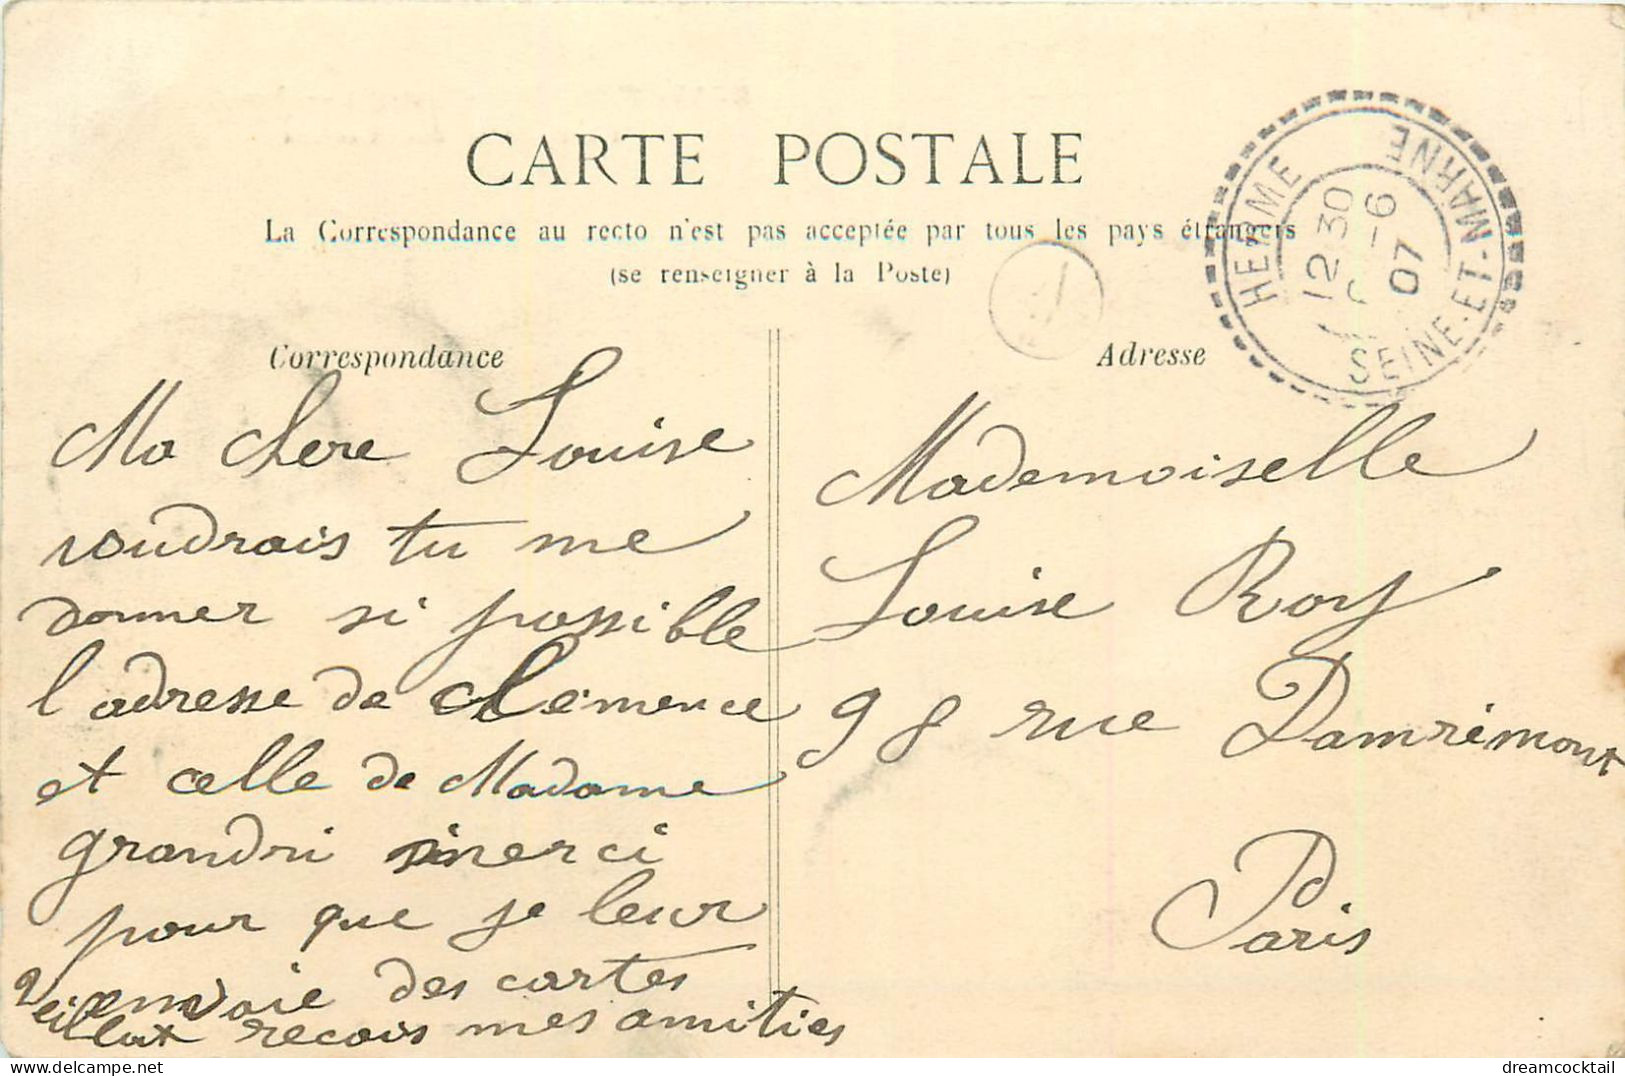 CARTE POSTALE
La Correspondance au recto n'est pas acceptée par tous les pays étrangers
(se renseigner à la Poste)
HERME
SEINE-ET-MARNE
12 30
-6
07
Correspondance
Ma chere Louise
voudrais tu me
donner si possible
l'adresse de Clemence
et celle de Madame
grandri merci
pour que je leur
envoie des cartes
recois mes amities
Adresse
Mademoiselle
Louise Roy
98 rue Damrémont
Paris
dreamcocktail